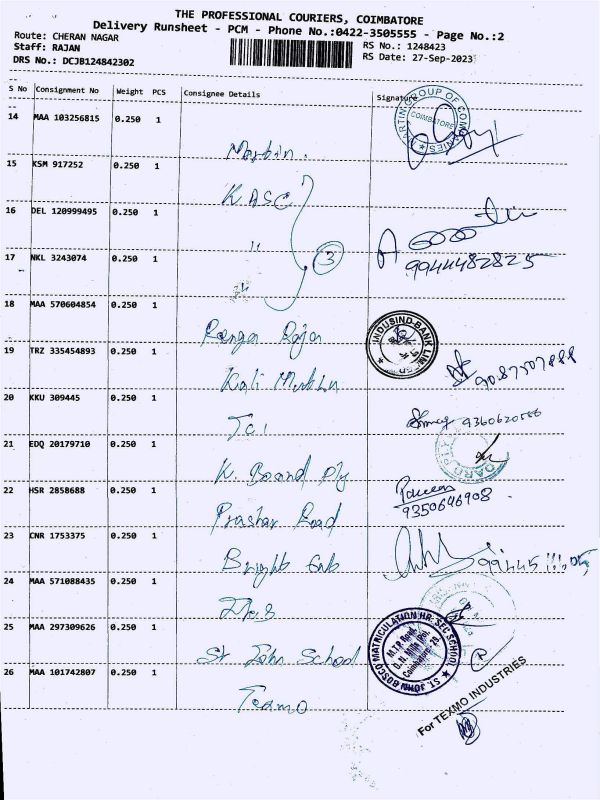 THE PROFESSIONAL COURIERS, COIMBATORE
Delivery Runsheet - PCM - Phone No.:0422-3505555 - Page No.:2
Route: CHERAN NAGAR
RS No.: 1248423
Staff: RAJAN
RS Date: 27-Sep-2023
DRS No.: DCJB124842302
S No Consignment No Weight PCS Consignee Details Signature
14 MAA 103256815 0.250 1
MARTIN GROUP OF COMPANIES
COIMBATORE
Martin.
15 KSM 917252 0.250 1
KASC
16 DEL 120999495 0.250 1
"
17 NKL 3243074 0.250 1
3
9944482825
18 MAA 570604854 0.250 1
Ranga Raja
INDUSIND BANK LIMITED
19 TRZ 335454893 0.250 1
Kali Muthu
9087507888
20 KKU 309445 0.250 1
TCI
21 EDQ 20179710 0.250 1
K. Board Ply
22 HSR 2858688 0.250 1
9350646908
Prashar Road
23 CNR 1753375 0.250 1
Bright
24 MAA 571088435 0.250 1
25 MAA 297309626 0.250 1
St John School
ST. JOHN BOSCO MATRICULATION HR. SEC SCHOOL
M.T.P. Road,
G.N. Mills Po,
Coimbatore - 29.
26 MAA 101742807 0.250 1
Texmo
For TEXMO INDUSTRIES